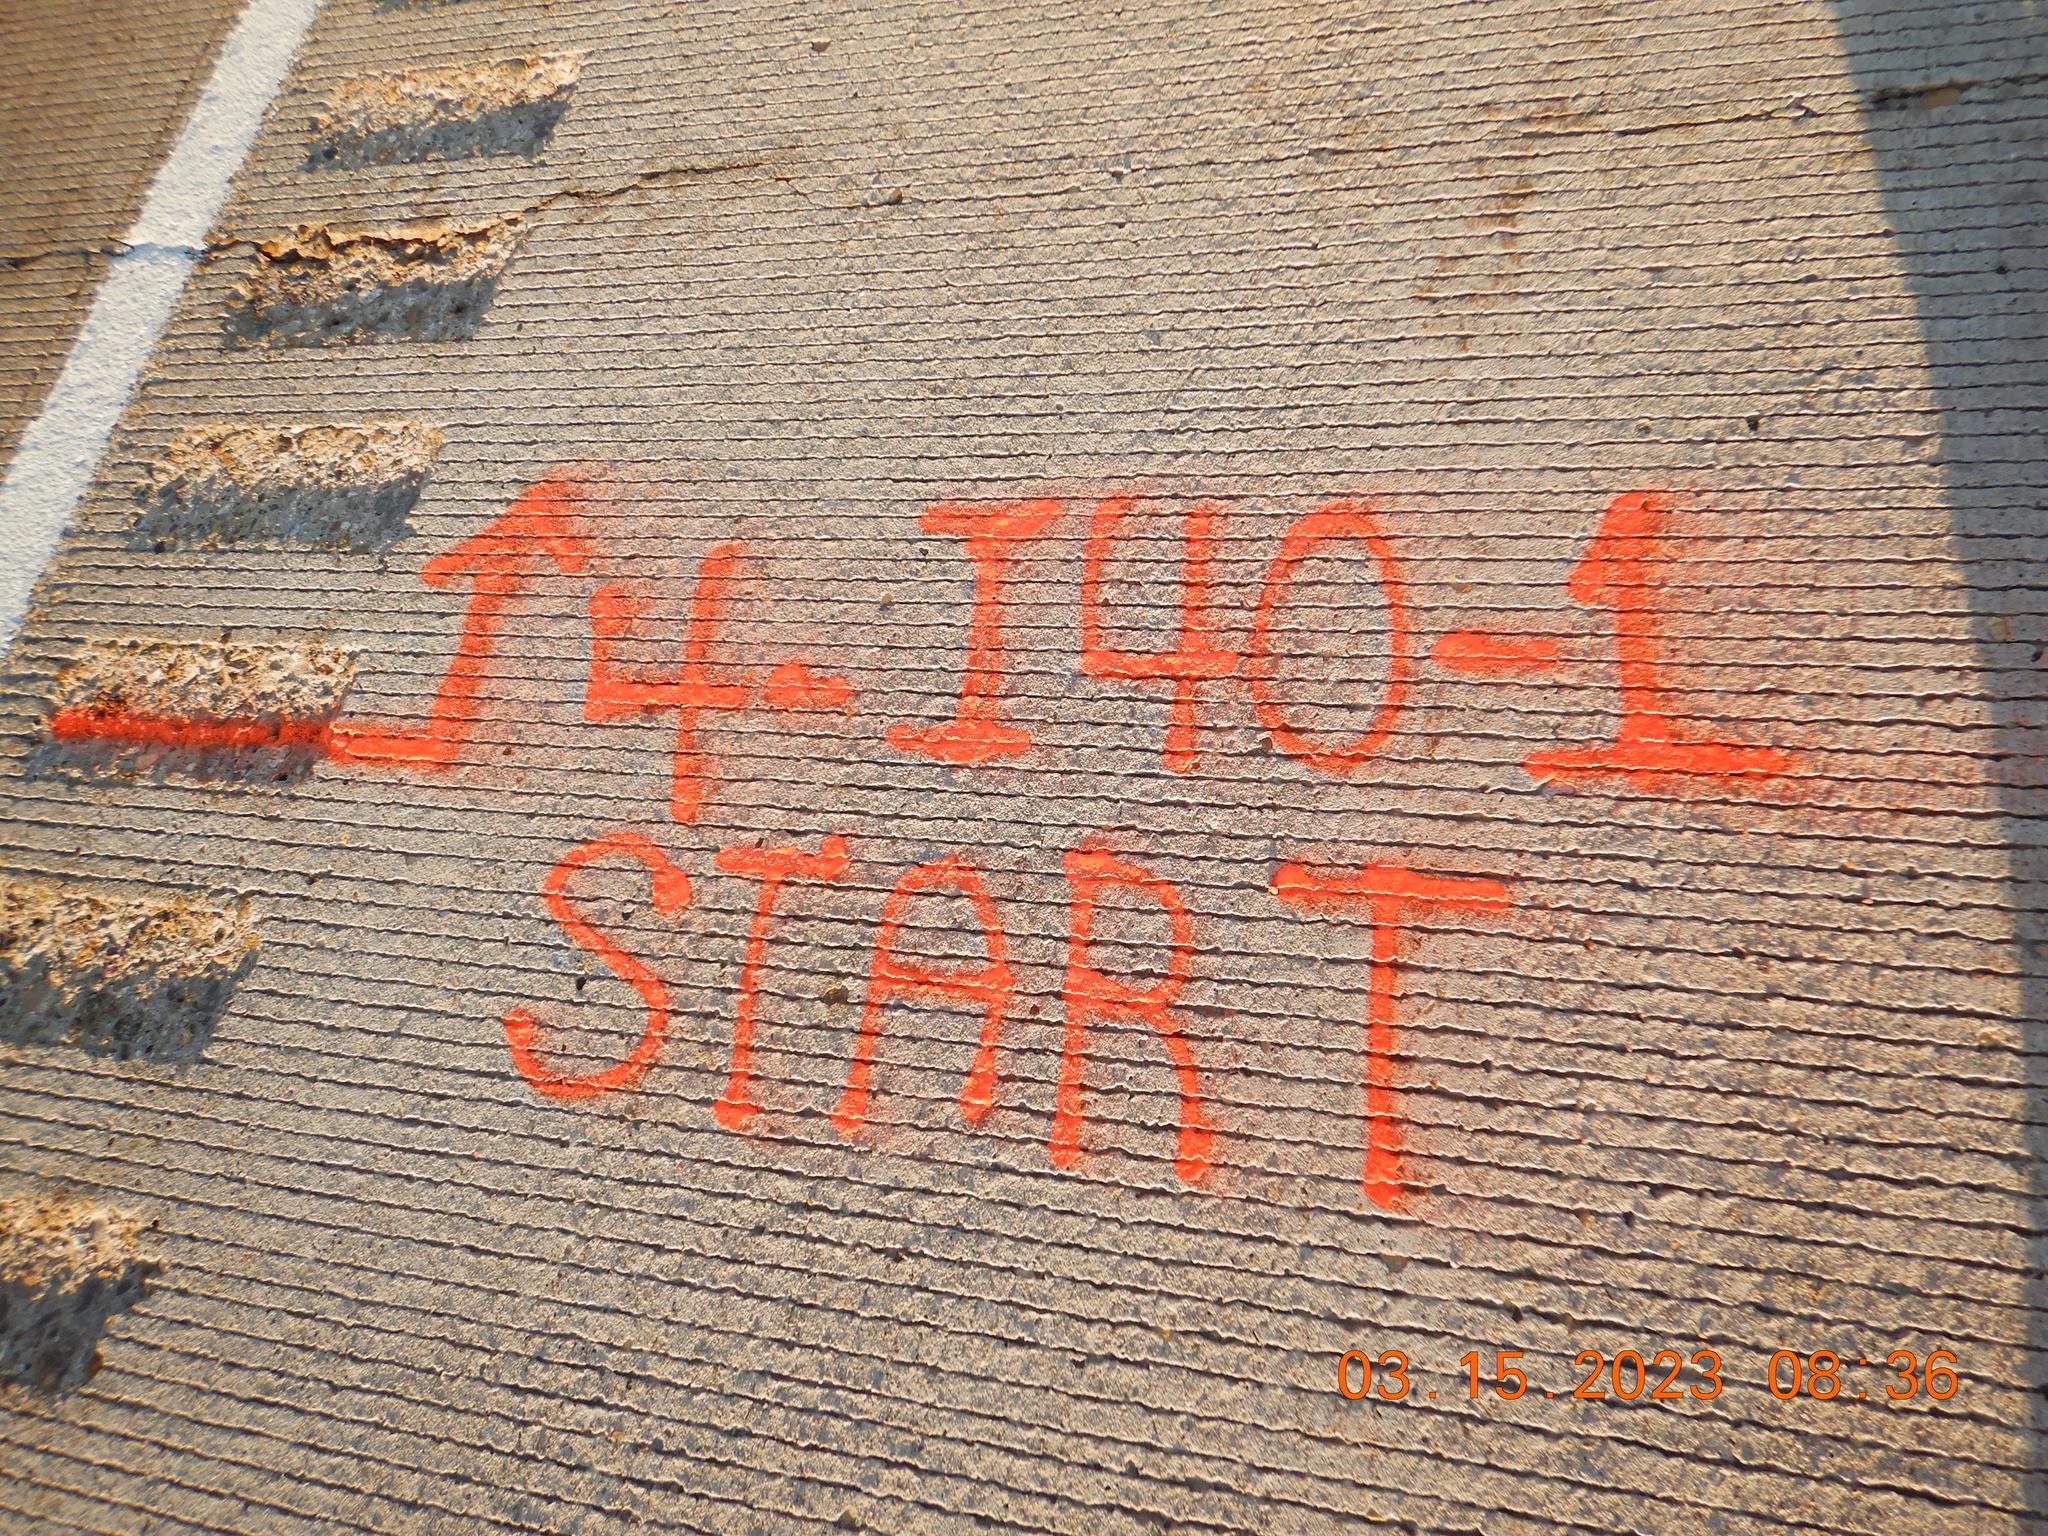 ↑4-I40-1
START
03.15.2023 08:36